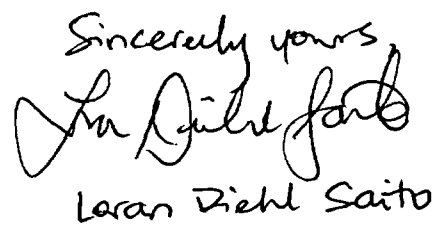 Sincerely yours,
Loran Diehl Saito
Loran Diehl Saito